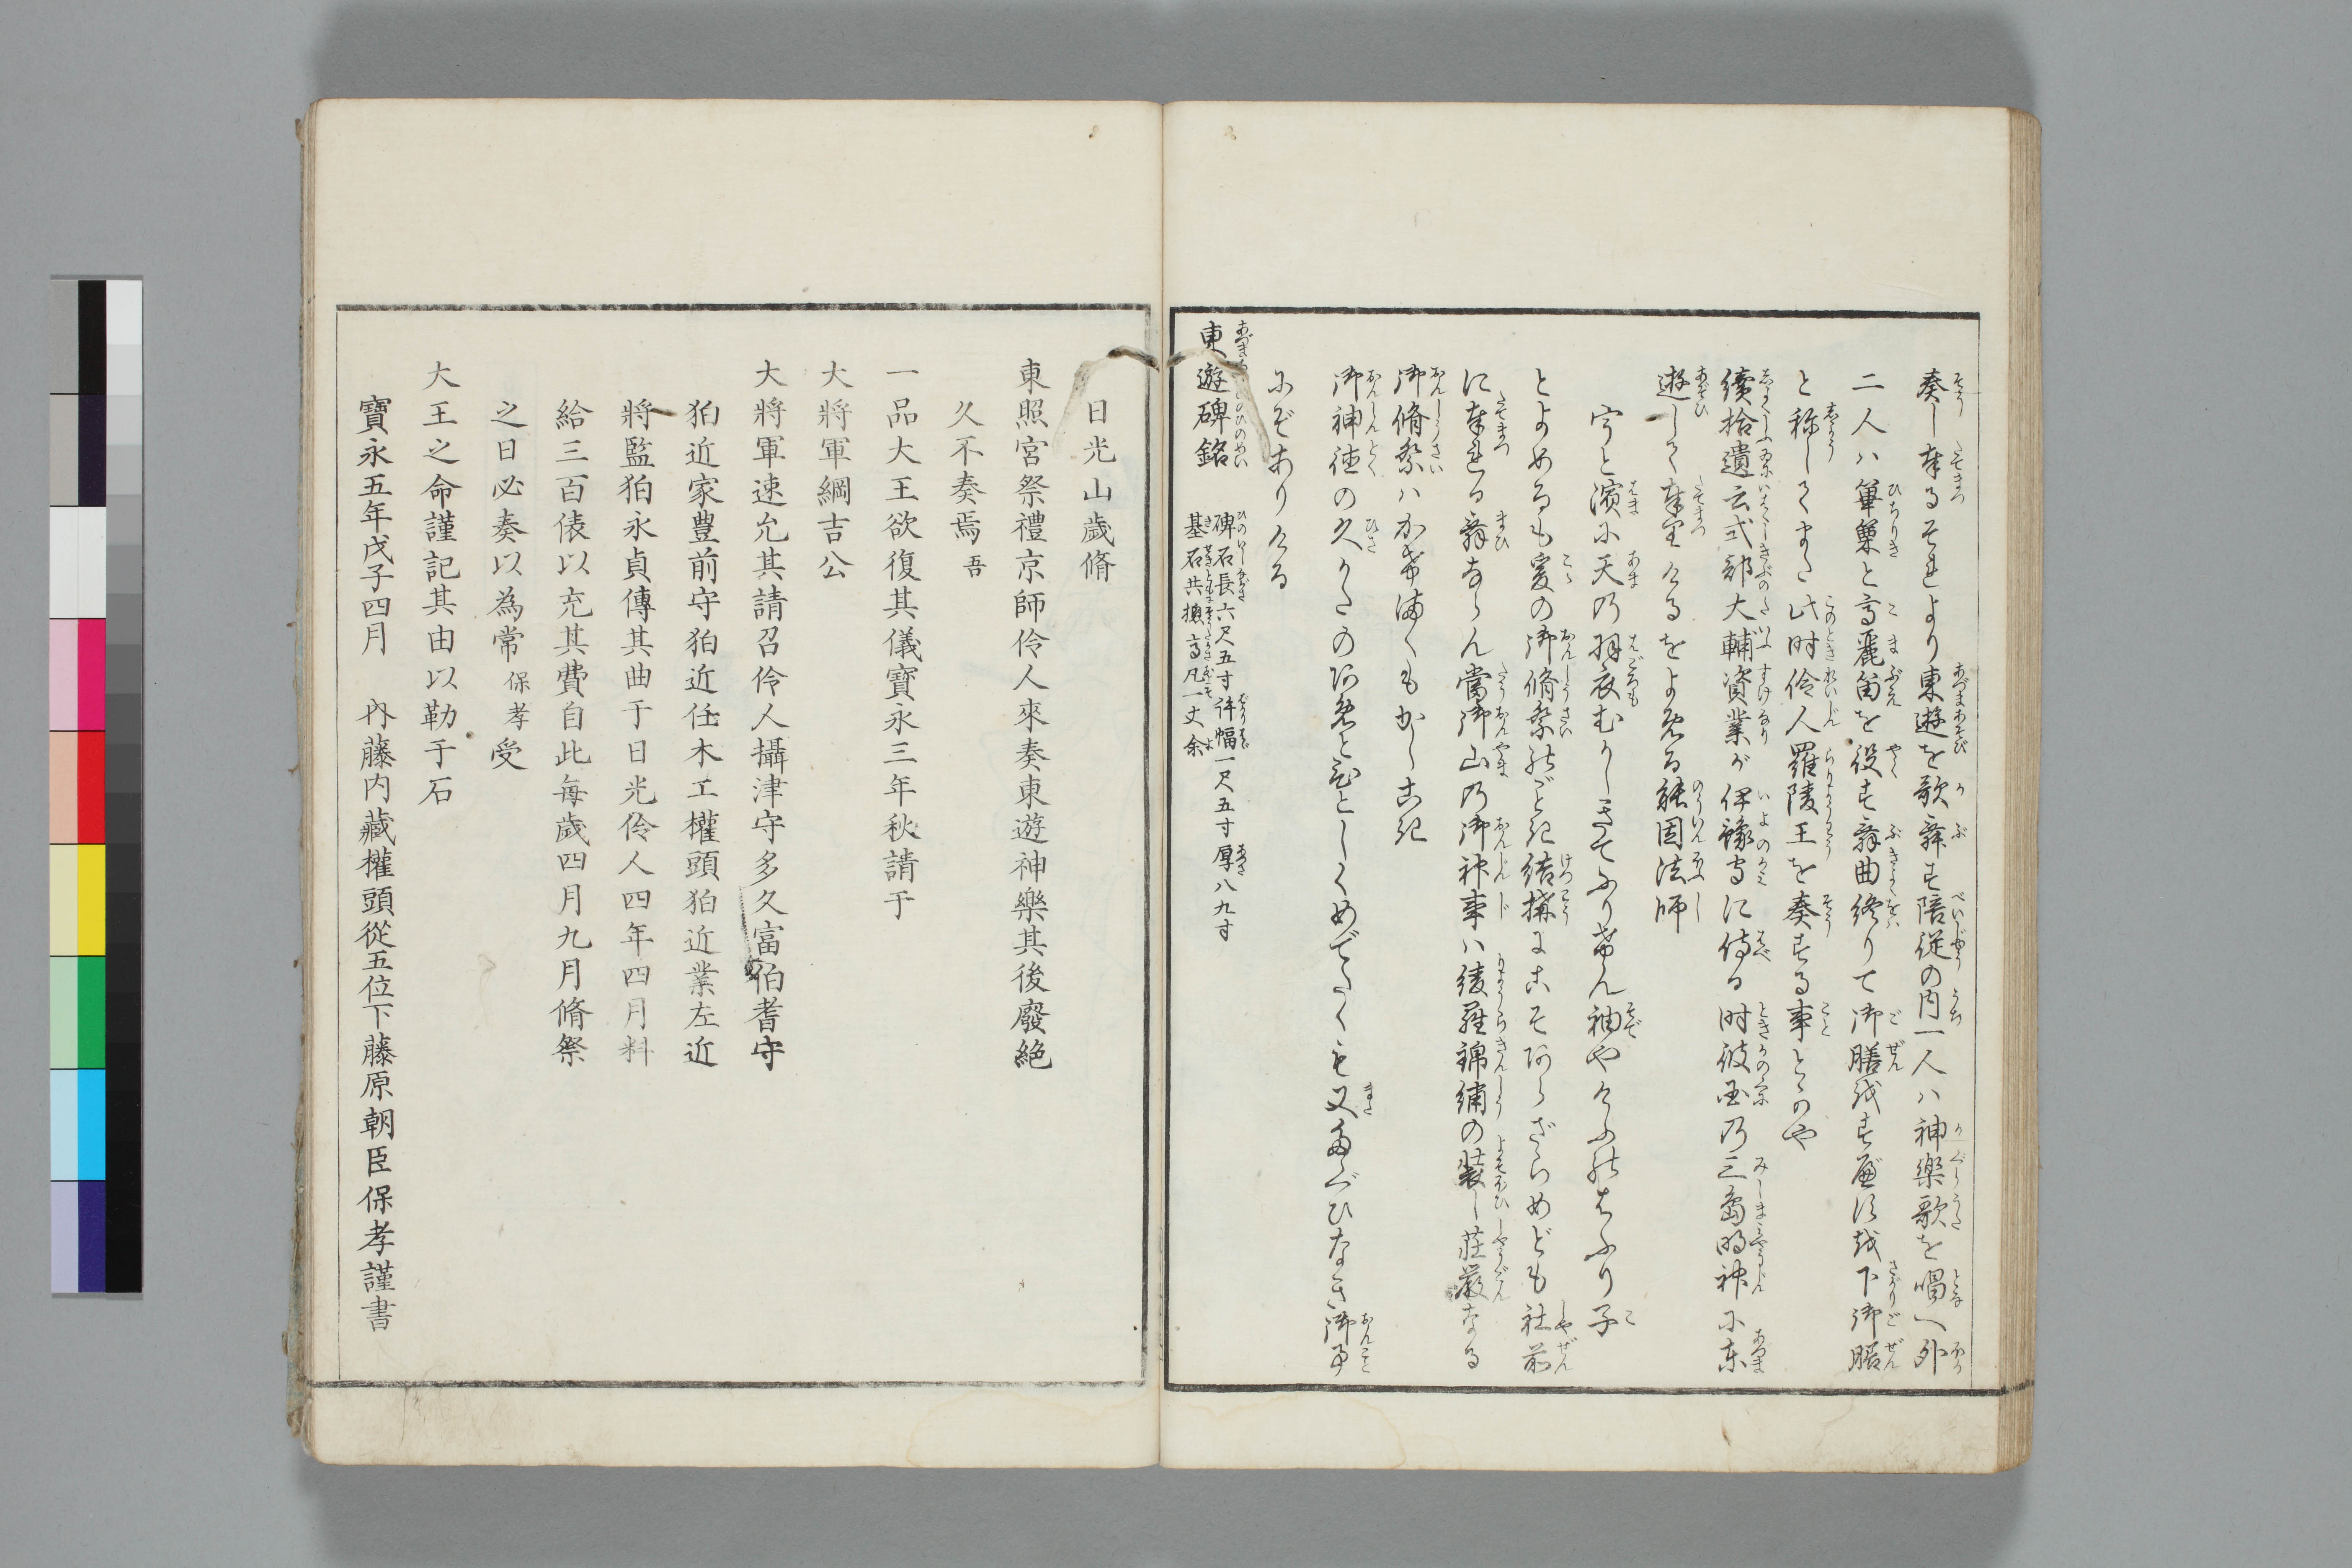 奏し奉るそれより東遊を歌舞す陪従の内一人ハ神楽歌を唱へ外
二人ハ篳篥と高麗笛を役す舞曲終りて御膳
と称しくまた此時伶人羅陵王を奏する事とかや
續拾遺云式部大輔資業が伊豫守に侍る時彼国乃三島明神に東
遊しく奉りけるをよめる能因法師
宇と濱に天乃羽衣むかしきてふりけん袖やけふのはふり子
とよめるも爰の御脩祭のごとき結構にこそあらざらめども社前
に奉れる舞ならん當御山乃御神事ハ綾羅錦繍の装し荘厳なる
御脩祭ハかけまくもかしこき
御神徳の久かたのあめとひとしくめでたくも又たぐひなき御事
にぞありける
東遊碑銘
碑石長六尺五寸件幅一尺五寸厚八九寸
基石共惣高凡一丈余
日光山歳脩
東照宮祭禮京師伶人來奏東遊神樂其後廢絶
久不奏焉吾
一品大王欲復其儀寶永三年秋請于
大將軍綱吉公
大將軍速允其請召伶人攝津守多久富伯耆守
狛近家豊前守狛近任木工權頭狛近業左近
將監狛永貞傳其曲于日光伶人四年四月料
給三百俵以充其費自此毎歳四月九月脩祭
之日必奏以為常保孝受
大王之命謹記其由以勒于石
寶永五年戊子四月　内藤内藏權頭從五位下藤原朝臣保孝謹書